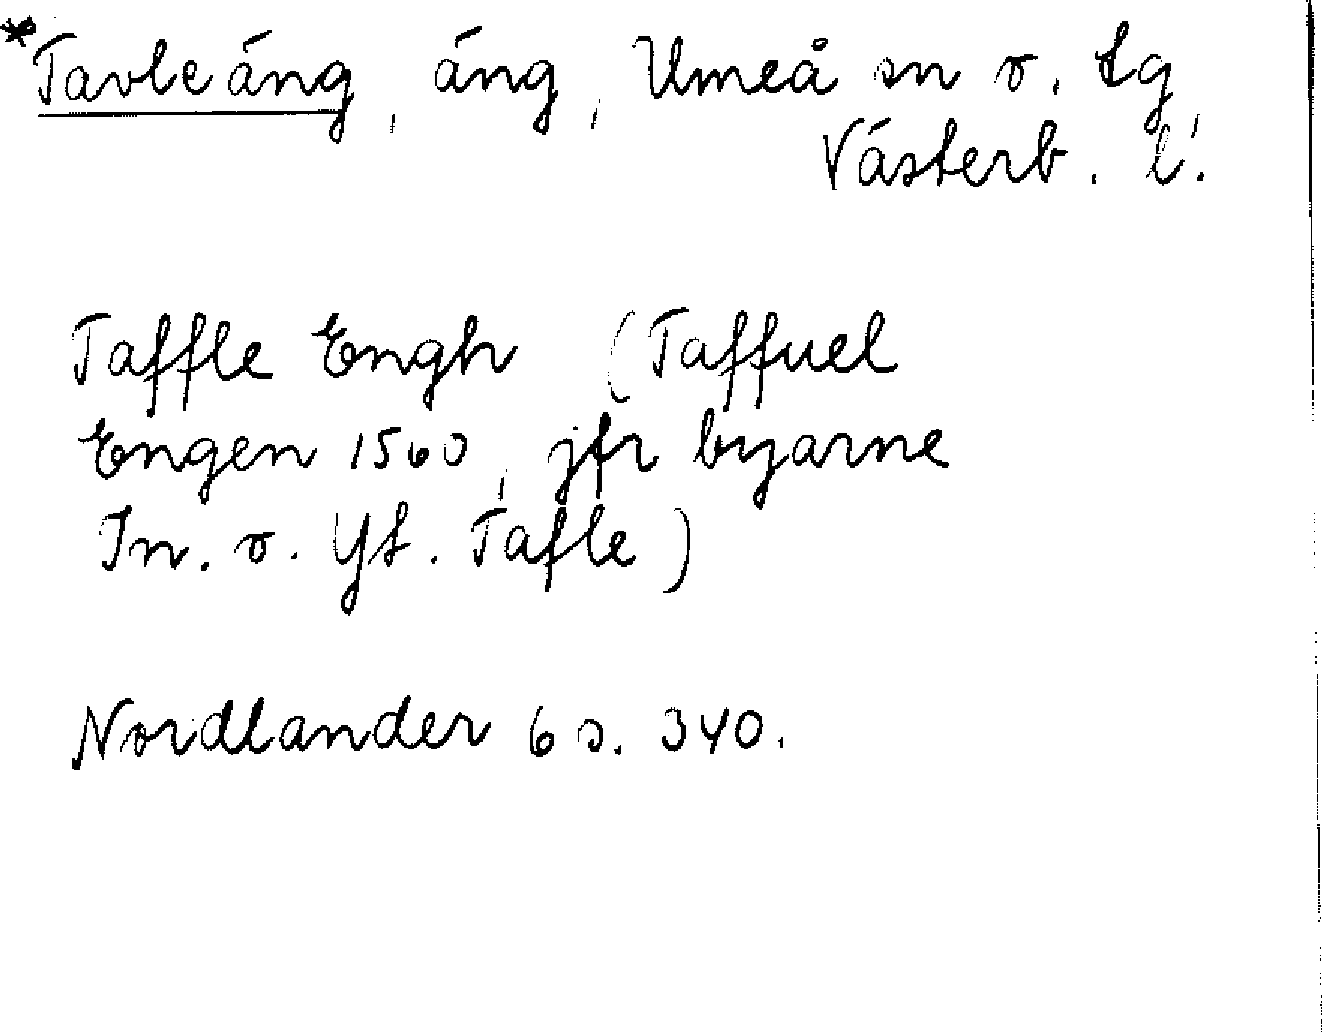 *Tavleäng, äng, Umeå sn o. tg,
Västerb. l.
Taffle Engh (Taffuel
Engen 1560, jfr byarne
In. o. Yt. Tafle)
Nordlander 6 s. 340.